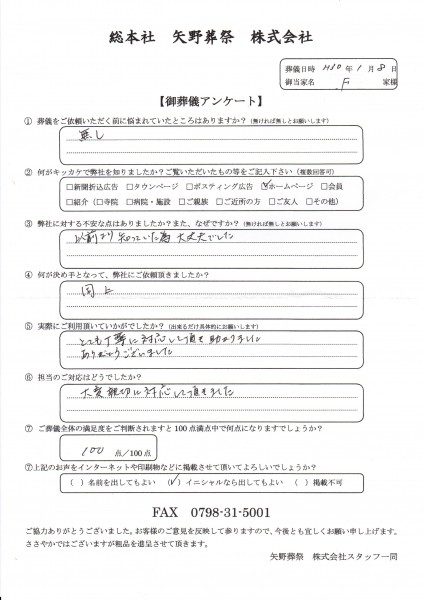 総本社 矢野葬祭 株式会社
葬儀日時 H30年1月8日
御当家名 F 家様
【御葬儀アンケート】
① 葬儀をご依頼いただく前に悩まれていたところはありますか？（無ければ無しとお願いします）
無し
② 何がキッカケで弊社を知りましたか？ご覧いただいたもの等をご記入下さい（複数回答可）
□新聞折込広告 □タウンページ □ポスティング広告 ☑ホームページ □会員
□紹介（□寺院 □病院・施設 □ご親族 □ご近所の方 □ご友人 □その他）
③ 弊社に対する不安な点はありましたか？また、なぜですか？（無ければ無しとお願いします）
以前より知っていた為大丈夫でした
④ 何が決め手となって、弊社にご依頼頂きましたか？
同上
⑤ 実際にご利用頂いていかがでしたか？（出来るだけ具体的にお願いします）
とても丁寧に対応して頂き助かりました
ありがとうございました
⑥ 担当のご対応はどうでしたか？
大変親切に対応して頂きました
⑦ ご葬儀全体の満足度をご判断されますと100点満点中で何点になりますでしょうか？
100 点/100点
⑦上記のお声をインターネットや印刷物などに掲載させて頂いてよろしいでしょうか？
（ ）名前を出してもよい （✓）イニシャルなら出してもよい （ ）掲載不可
FAX 0798-31-5001
ご協力ありがとうございました。お客様のご意見を反映して参りますので、今後とも宜しくお願い申し上げます。
ささやかではございますが粗品を進呈させて頂きます。
矢野葬祭 株式会社スタッフ一同